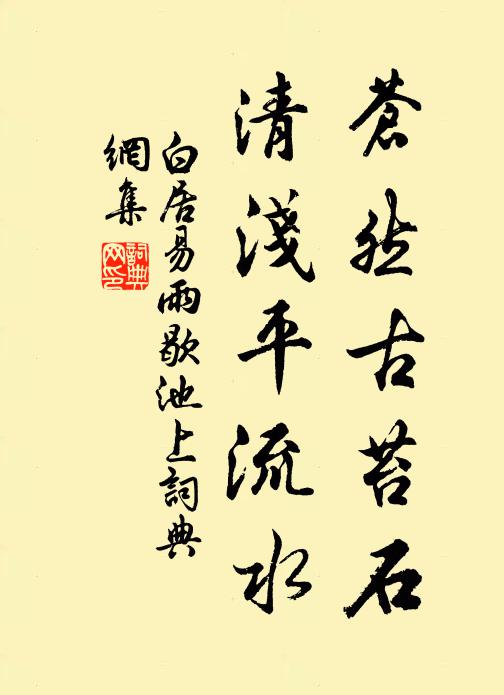 蒼然古苔石
清淺平流水
白居易雨歇池上詞典
網集
詞典
网印